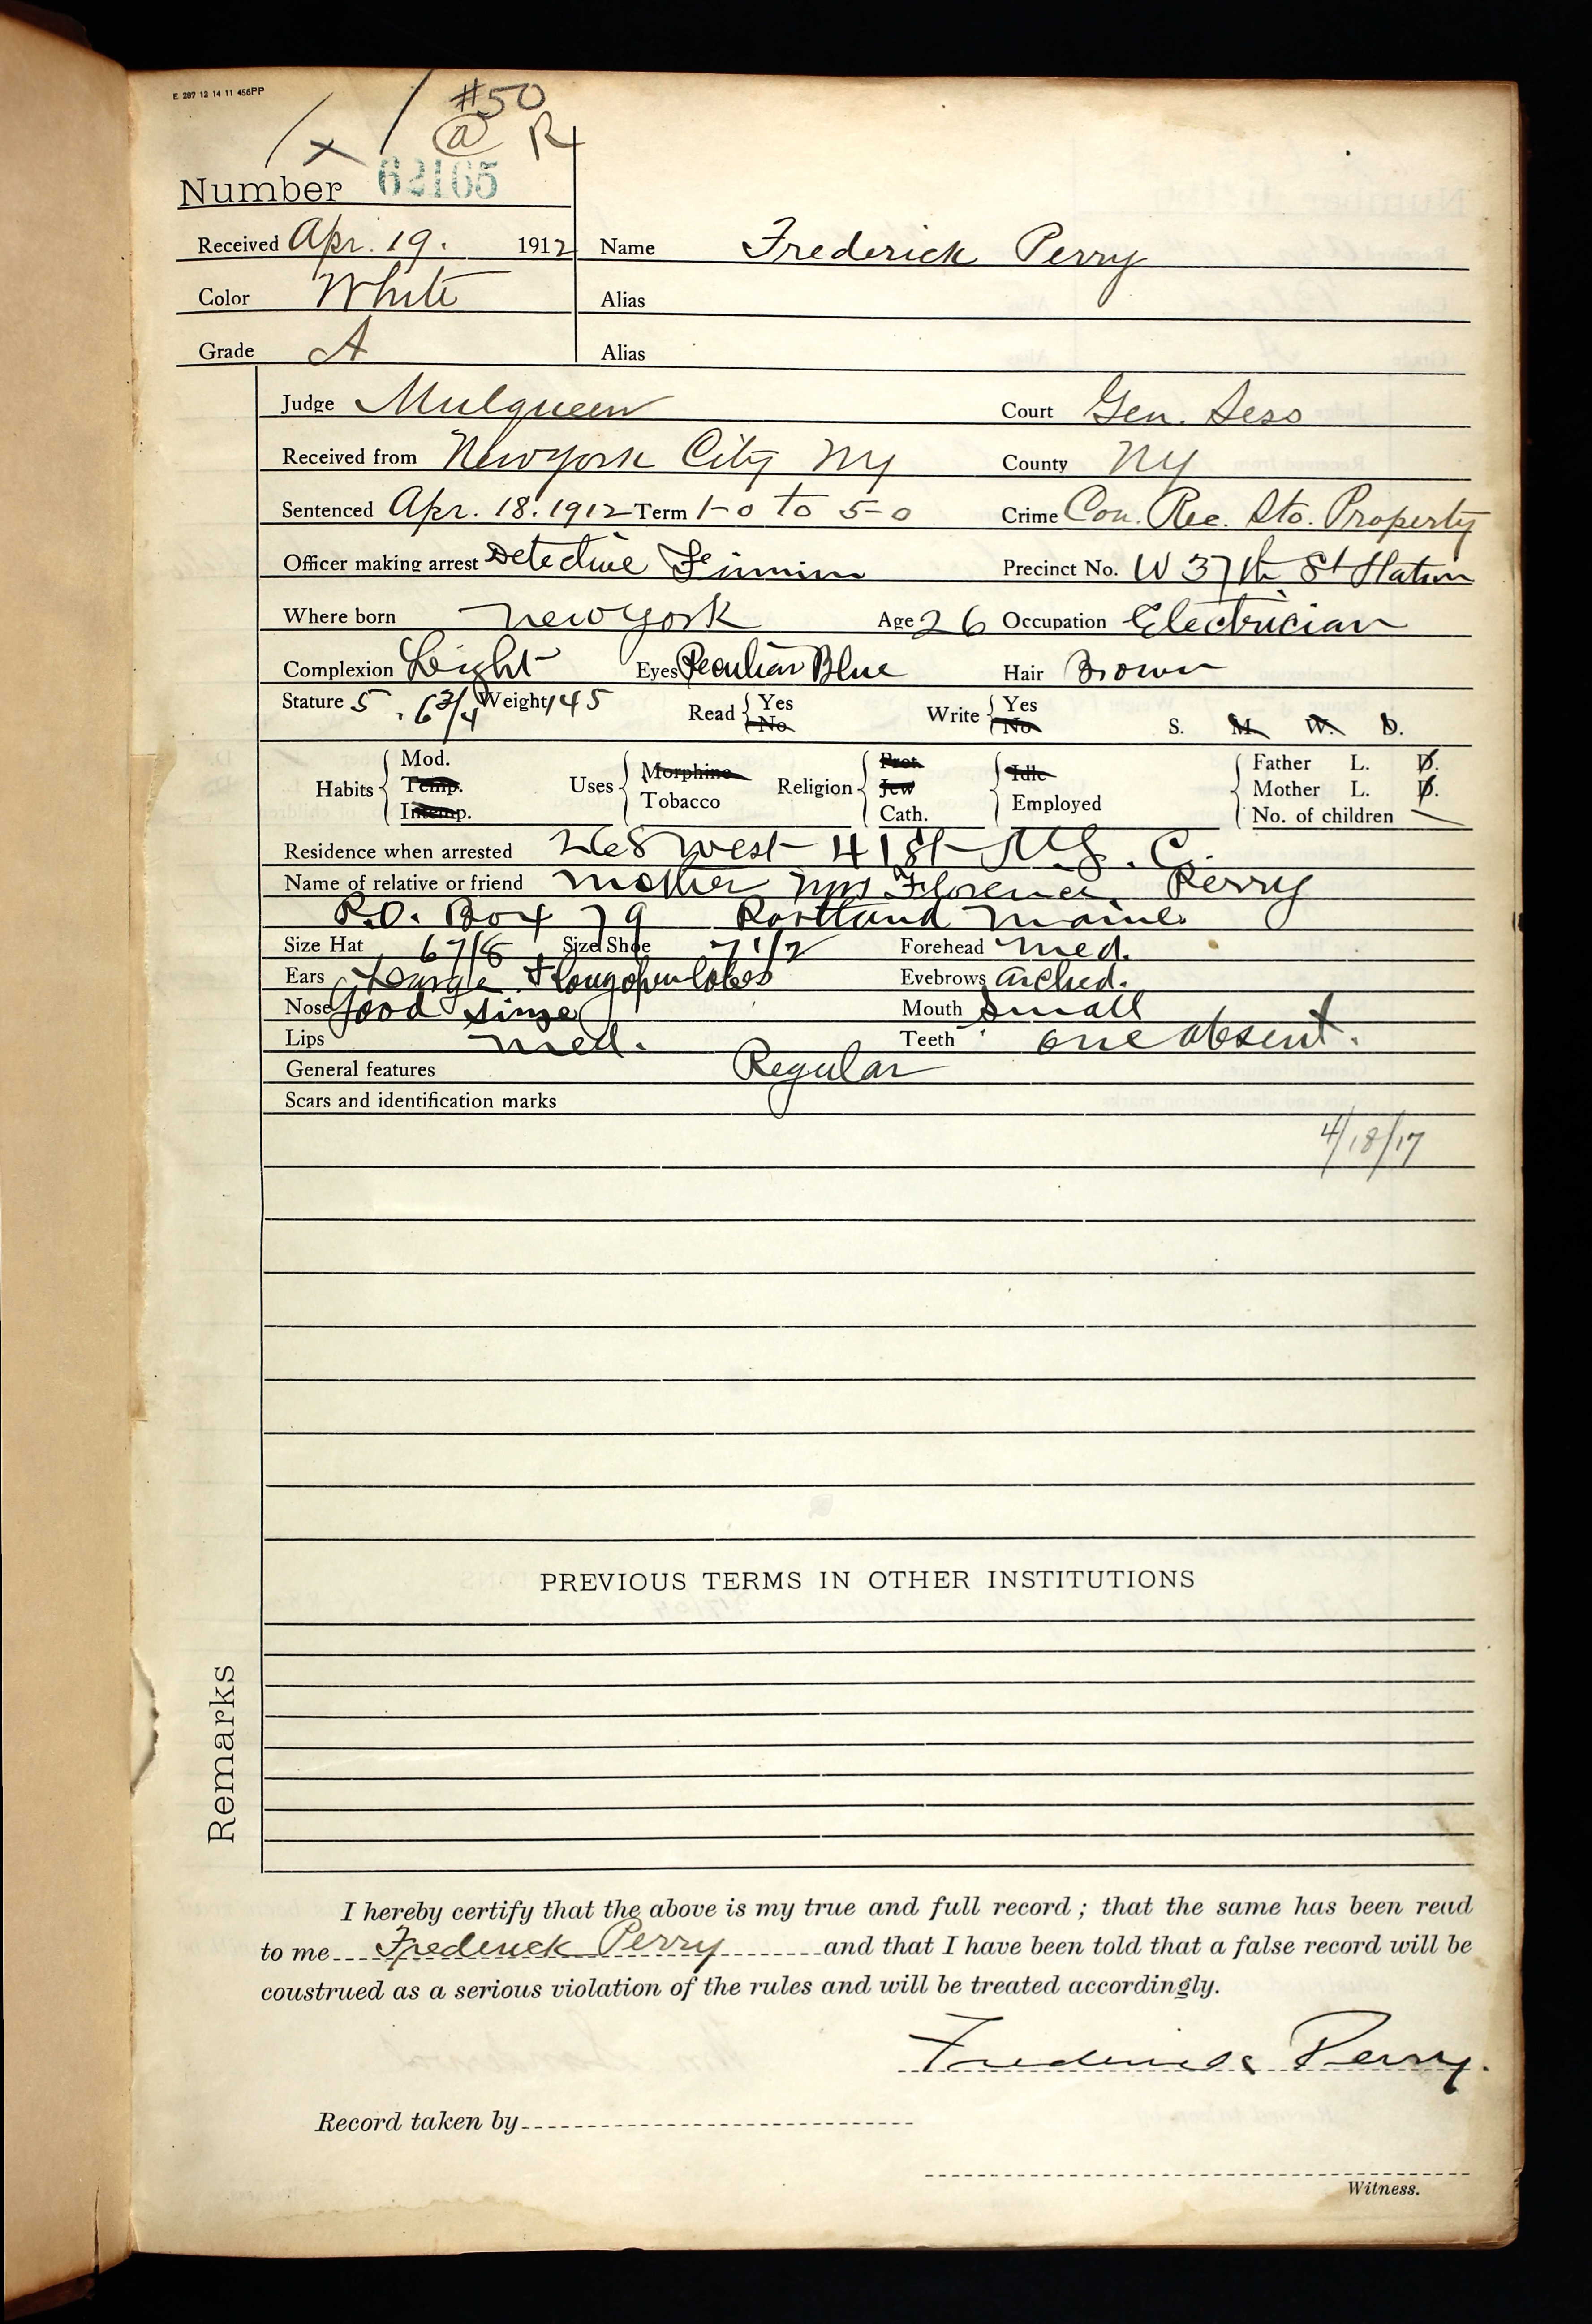 E 287 12 14 11 456PP
#50
@ R
X
Number 62165
Received Apr. 19. 1912 Name Frederick Perry
Color White Alias
Grade A Alias
Judge Mulqueen Court Gen. Sess
Received from New York City NY County NY
Sentenced Apr. 18. 1912 Term 1-0 to 5-0 Crime Con. Rec. Sto. Property
Officer making arrest Detective Precinct No. W 37th St Station
Where born new york Age 26 Occupation Electrician
Complexion Light Eyes Peculiar Blue Hair Brown
Stature 5. 6 3/4 Weight 145 Read { Yes Write { Yes
No No S. M. W. D.
Habits { Mod. Uses { Morphine Religion { Prot. { Idle { Father L. D.
Temp. Tobacco Jew Employed Mother L. D.
Intemp. Cath. No. of children —
Residence when arrested 268 West 41st N.Y. C.
Name of relative or friend mother Mrs Florence Perry
P.O. Box 79 Portland Maine.
Size Hat 6 7/8 Size Shoe 7 1/2 Forehead med.
Ears Large & long open lobes Eyebrows arched.
Nose good sinze Mouth small
Lips med. Teeth one absent.
General features Regular
Scars and identification marks
4/18/17
PREVIOUS TERMS IN OTHER INSTITUTIONS
Remarks
I hereby certify that the above is my true and full record ; that the same has been read
to me Frederick Perry and that I have been told that a false record will be
coustrued as a serious violation of the rules and will be treated accordingly.
Frederick Perry.
Record taken by
Witness.